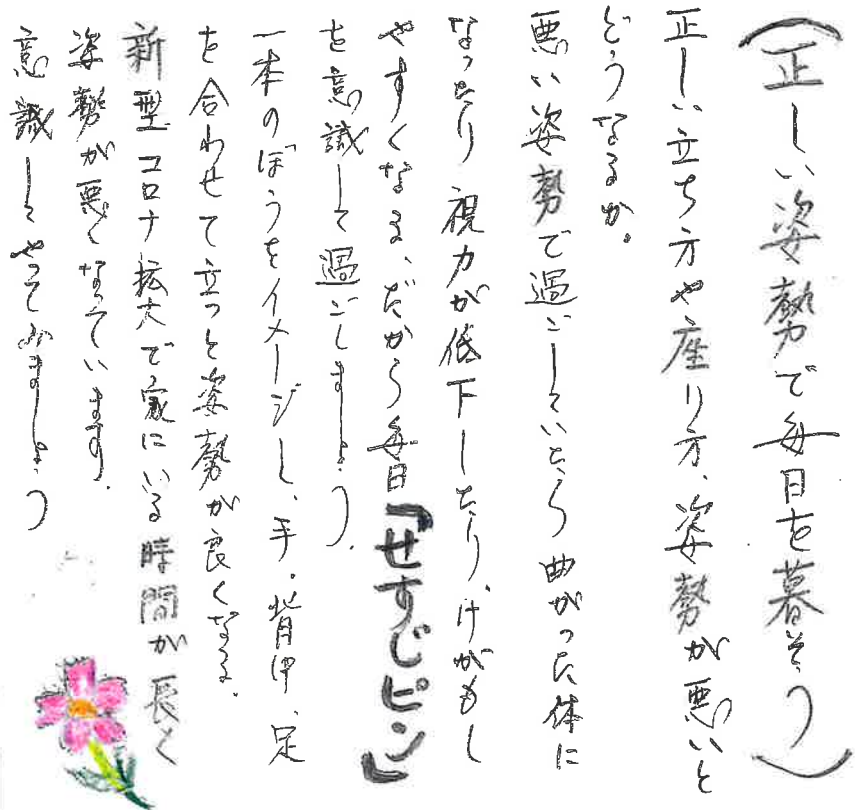 （正しい姿勢で毎日を暮そう）
正しい立ち方や座り方、姿勢が悪いと
どうなるか。
悪い姿勢で過ごしていたら曲がった体に
なったり視力が低下したり、けがもし
やすくなる、だから毎日『せすじピン』
を意識して過ごしましょう。
一本のぼうをイメージし、手・背中、足
を合わせて立つと姿勢が良くなる。
新型コロナ拡大で家にいる時間が長く
姿勢が悪くなっています。
意識してやってみましょう